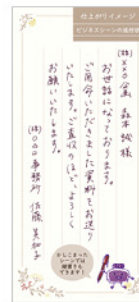 仕上がりイメージ
ビジネスシーンの送付状
(株)×××企画 森本 誠 様
お世話になっております。
ご用命いただきました資料をお送り
いたします。ご査収のほど、よろしく
お願いいたします。
(株)○△○事務所 佐藤 美和子
かしこまった
シーンでは
縦書きも
できます!